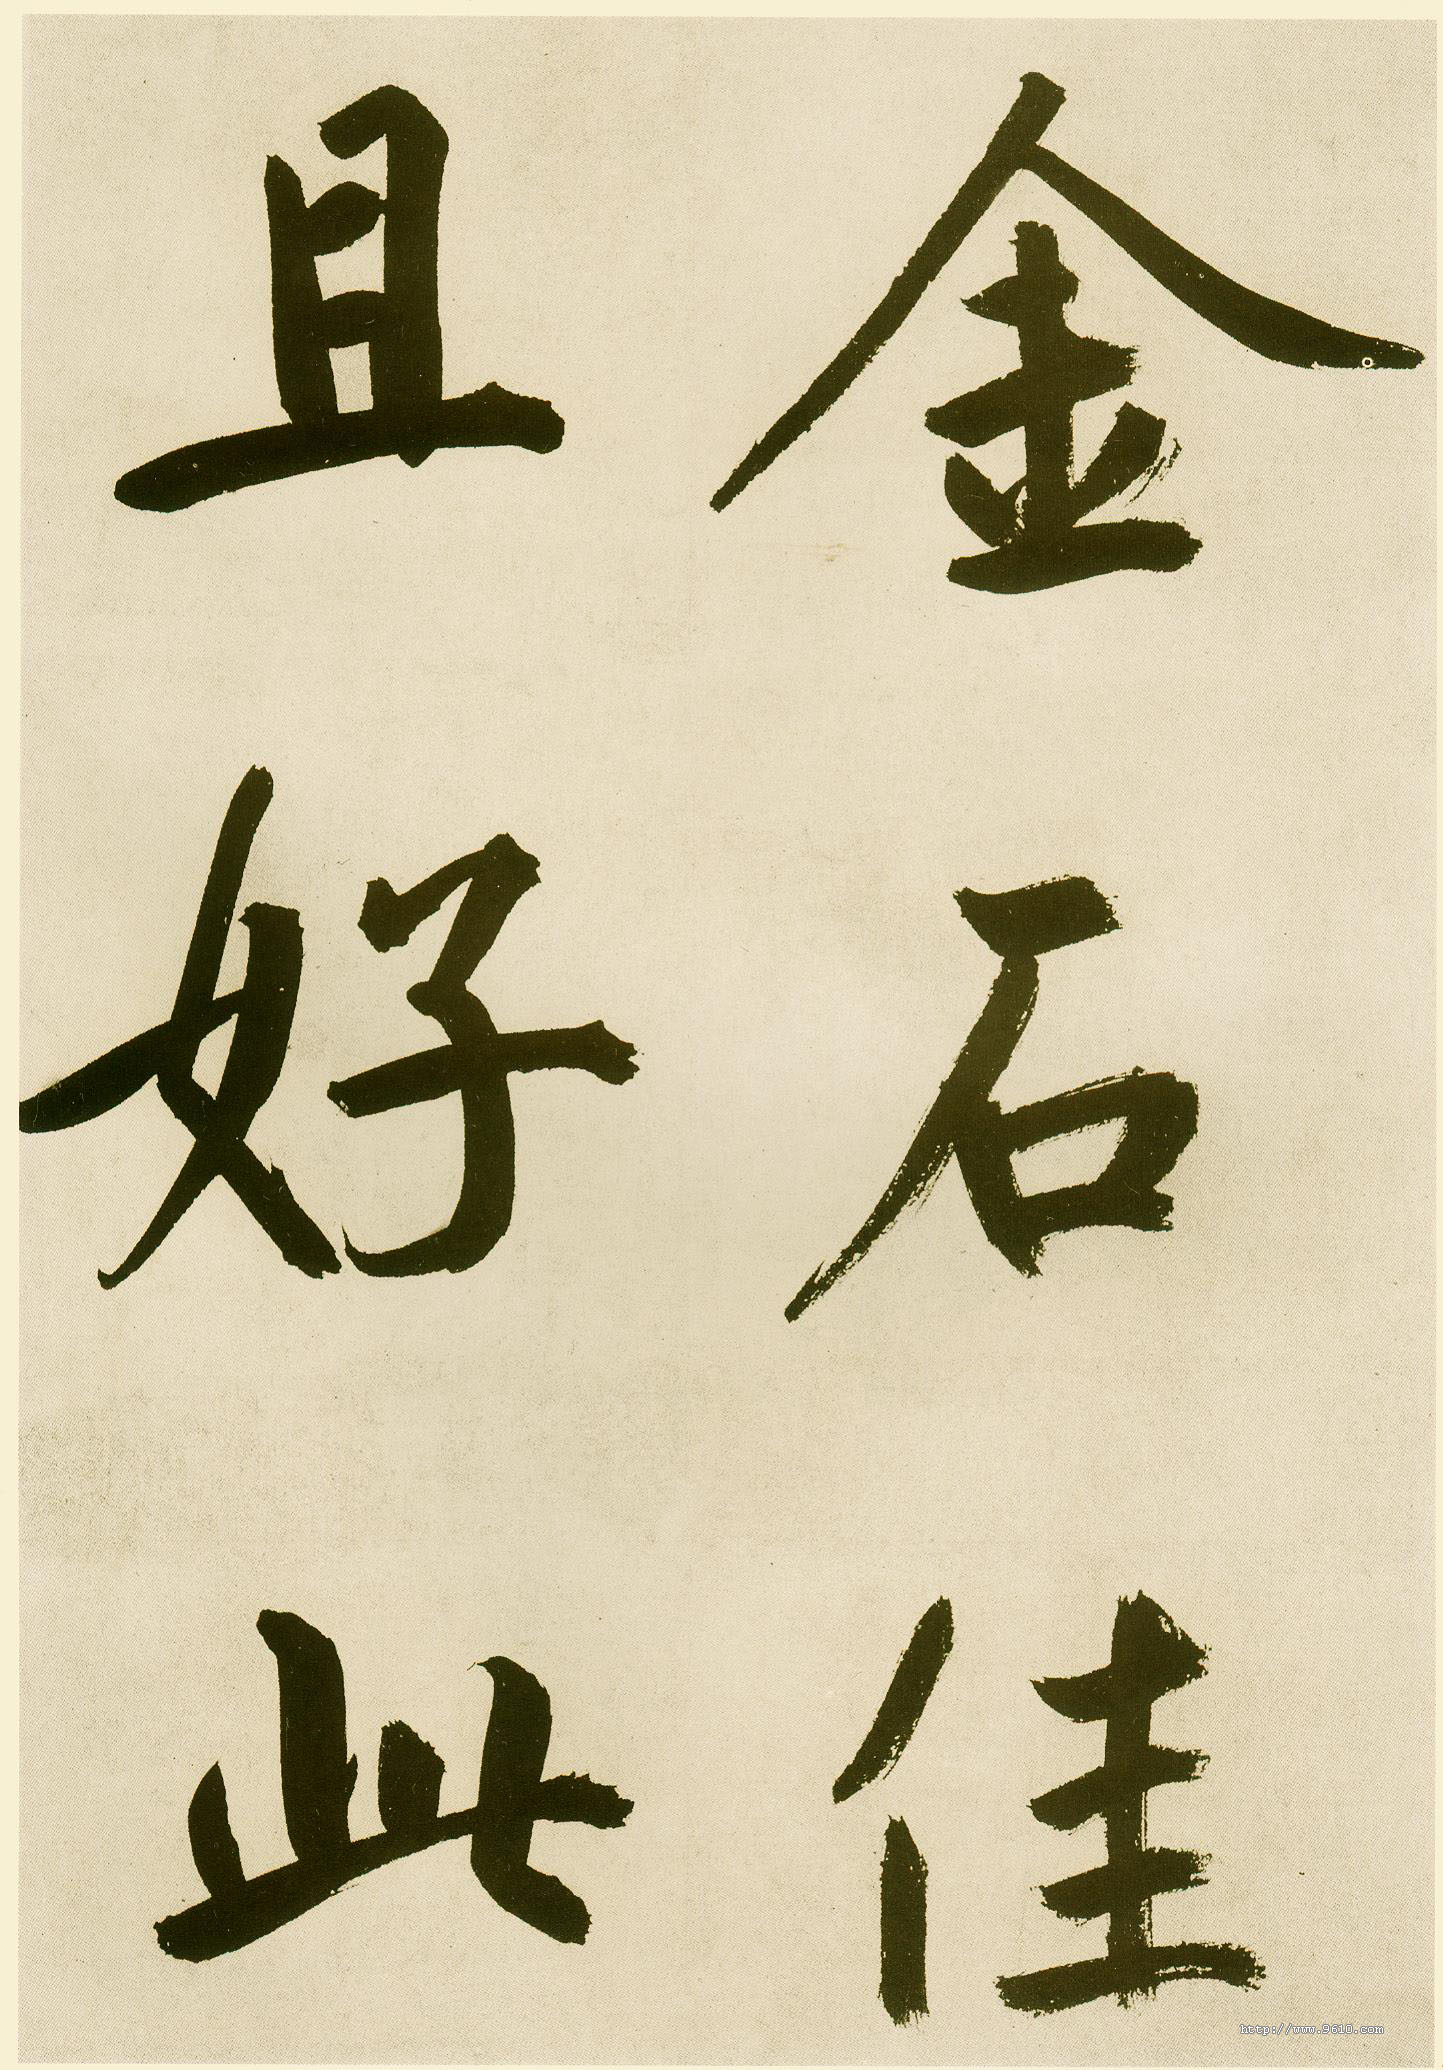 金石佳
且好此
http://www.9610.com